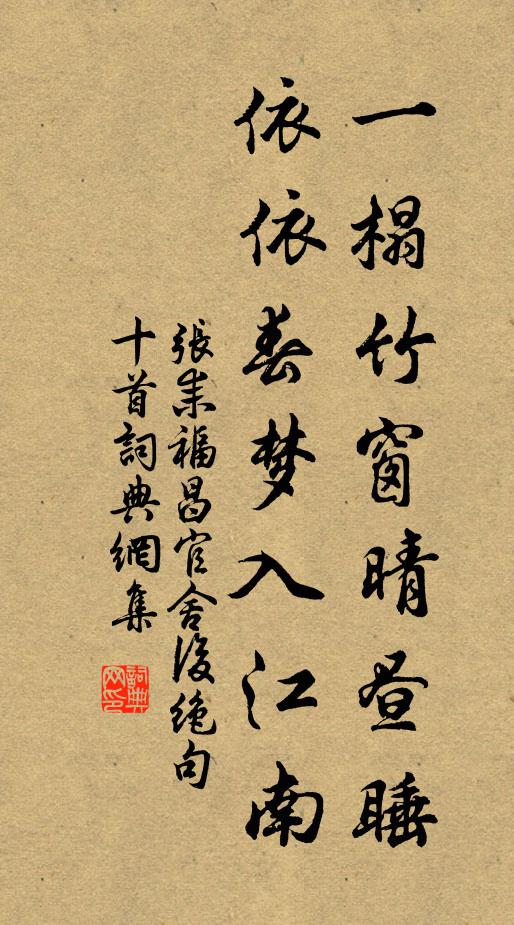 一榻竹窗晴昼睡
依依春梦入江南
張耒福昌官舍後絶句
十首詞典網集
詞典
网印